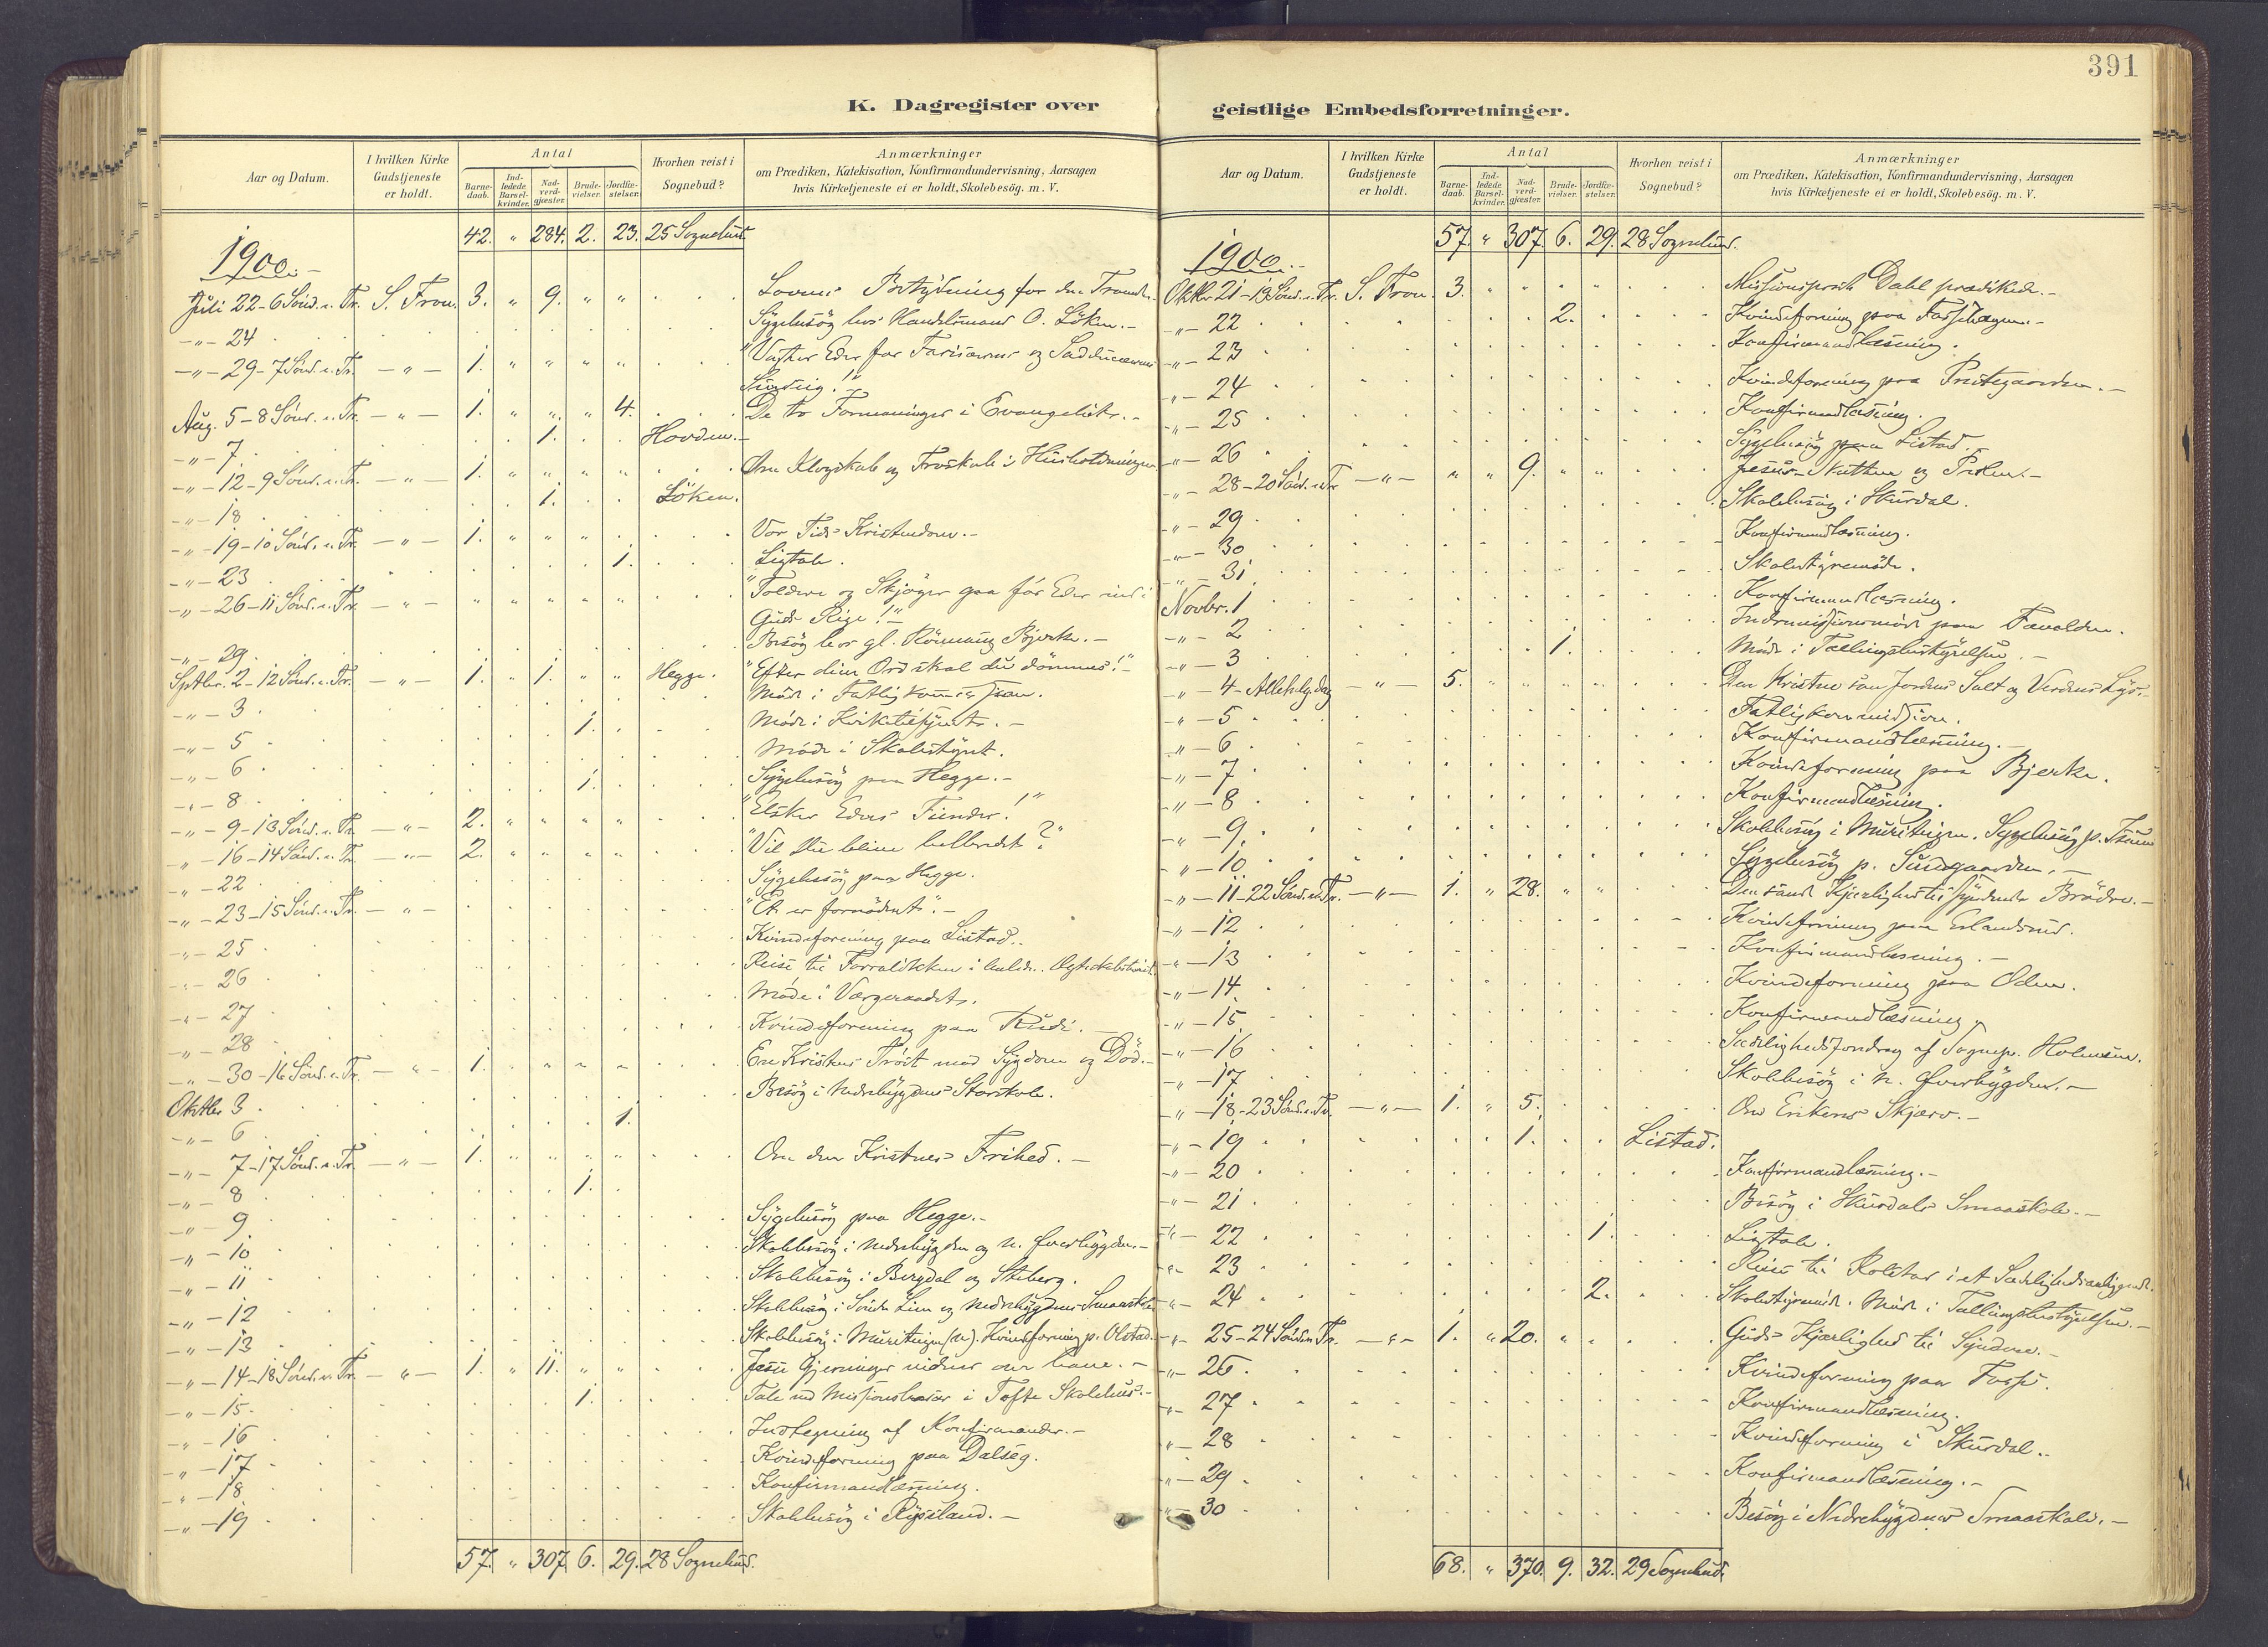 391
K. Dagregister over
Aar og Datum. I hvilken Kirke Gudstjeneste er holdt. Antal Barnedaab. Indledede Barselkvinder. Nadverdgjæster. Brudevielser. Jordfæstelser. Hvorhen reist i Sognebud? Anmærkninger om Prædiken, Katekisation, Konfirmandundervisning, Aarsagen hvis Kirketjeneste ei er holdt, Skolebesög. m. V.
42. " 284. 2. 23. 25 Sognebud.
1900.-
Juli 22-6 Sönd. e. Tr. S. Fron. 3. " 9. " " Lovens Betydning for den Troende.
-"- 24 Sygebesög hos Handelsmand O. Löken.-
-"- 29-7 Sönd. e. Tr. -"- 1. " " " " "Vogter Eder for Farisæernes og Sadducæernes
Surdeig!"
Aug. 5-8 Sönd. e. Tr. -"- 1. " " " 4. De to Formaninger i Evangeliet.-
-"- 7 1. Hovden.-
-"- 12-9 Sönd. e. Tr. -"- 1. " " " " Om Klogskab og Troskab i Husholdningen
-"- 18 1. Löken.
-"- 19-10 Sönd. e. Tr. -"- 1. " " " Vor Tids Kristendom.-
-"- 23 1. Ligtale.
-"- 26-11 Sönd. e. Tr. -"- " " " " " "Toldere og Skjöger gaa för Eder ind i
Guds Rige!"-
-"- 29. Besög hos gl. Bjerke.-
Septbr. 2-12 Sönd. e. Tr. -"- 1. " 1. " " Hegge. "Efter dine Ord skal du dömmes!"-
-"- 3 Möde i Fatligkommissjon.
-"- 5 1. Möde i Kirketilsynet.-
-"- 6 Möde i Skolestyret.
-"- 8 1. Sygebesög paa Hegge.-
-"- 9-13 Sönd. e. Tr. -"- 2. " " " " "Elsker Eders Fiender!"
-"- 16-14 Sönd. e. Tr. -"- 2. " " " " "Vil du blive helbredet?"
-"- 22 Sygebesög paa Hegge.
-"- 23-15 Sönd. e. Tr. -"- "Et er fornödent".-
-"- 25 Kvindeforening paa Listad.
-"- 26 Reise til i Anledn.
-"- 27 Möde i Værgeraadet.
-"- 28 Kvindeforening paa Rudi.-
-"- 30-16 Sönd. e. Tr. -"- 1. " " " " En Kristens Tröst mod Sygdom og Död.-
Oktbr. 3 Besög i Nedrebygdens Storskole.
-"- 6 1.
-"- 7-17 Sönd. e. Tr. -"- 1. " " " " Om den Kristnes Frihed.-
-"- 8 1.
-"- 9 Sygebesög paa Hegge.-
-"- 10 Skolebesög i Nedrebygden og n. Överbygden.-
-"- 11 Skolebesög i Bergdal og Steberg.
-"- 12 Skolebesög i Söndre Lien og Nedrebygdens Smaaskole
-"- 13 Skolebesög i Muristuen (n). Kvindeforening p. Olstad.
-"- 14-18 Sönd. e. Tr. -"- 1. " 11. " " Jesu Gjerninger vidner om ham.-
-"- 15 1. Tale ved Missionsbasar i Tofte Skolehus.-
-"- 16 Indtegning af Konfirmander.-
-"- 17 Kvindeforening paa Dalseg.
-"- 18 Konfirmandlæsning.
-"- 19 Skolebesög i Rypsland.-
57. " 307. 6. 29. 28 Sognebud.
geistlige Embedsforretninger.
Aar og Datum. I hvilken Kirke Gudstjeneste er holdt. Antal Barnedaab. Indledede Barselkvinder. Nadverdgjæster. Brudevielser. Jordfæstelser. Hvorhen reist i Sognebud? Anmærkninger om Prædiken, Katekisation, Konfirmandundervisning, Aarsagen hvis Kirketjeneste ei er holdt, Skolebesög. m. V.
57. " 307. 6. 29. 28 Sognebud.
1900.-
Oktbr. 21-19 Sönd. e. Tr. S. Fron. 3. " " " " Missionsprest Dahl prædikede.-
-"- 22 2. Kvindeforening paa Forshaugen.-
-"- 23 Konfirmandlæsning.
-"- 24 Kvindeforening paa Prestegaarden.-
-"- 25 Konfirmandlæsning.
-"- 26 Sygebesög paa Listad.
-"- 28-20 Sönd. e. Tr. -"- " " 9. " " Jesus og
-"- 29 Skolebesög i Skurdal.
-"- 30 Konfirmandlæsning.
-"- 31 Skolestyremöde.
Novbr. 1 Konfirmandlæsning.
-"- 2 Indremissionsmöde paa
-"- 3 1. Möde i Tællingsbestyrelsen.-
-"- 4-Allehelg.dag -"- 5. " " " " Den Kristne som Jordens Salt og Verdens Lys.-
-"- 5 Fatligkommission.
-"- 6 Konfirmandlæsning.-
-"- 7 Kvindeforening paa Bjerke.
-"- 8 Konfirmandlæsning.
-"- 9. Skolebesög i Muristuen. Sygebesög p.
-"- 10 Sygebesög p. Sundgaarden.-
-"- 11-22 Sönd. e. Tr. -"- 1. " 28. " " Den sande Kjærlighed til syndende Brödre.-
-"- 12 Kvindeforening paa Erlandsrud.
-"- 13 Konfirmandlæsning.-
-"- 14 Kvindeforening paa Oden.
-"- 15 Konfirmandlæsning.
-"- 16 Sædelighedsforedrag af Sognepr. Holmsen.
-"- 17 Skolebesög i n. Överbygden.-
-"- 18-23 Sönd. e. Tr. -"- 1. " 5. Om Enkens Skjærv.-
-"- 19 1. Listad.
-"- 20 Konfirmandlæsning.-
-"- 21 Besög i Skurdals Smaaskole.-
-"- 22 1. Ligtale.
-"- 23 Reise til i et Sædelighedsanliggende.
-"- 24 2. Skolestyremöde. Möde i Tællingsbestyrelsen.-
-"- 25-24 Sönd. e. Tr. -"- 1. " 20. " Guds Kjærlighed til Syndere.-
-"- 26 Kvindeforening paa Forse.
-"- 27 Konfirmandlæsning.
-"- 28 Kvindeforening i Skurdal.
-"- 29 Konfirmandlæsning.-
-"- 30 Besög i Nedrebygdens Smaaskole.-
68. " 370. 9. 32. 29 Sognebud.